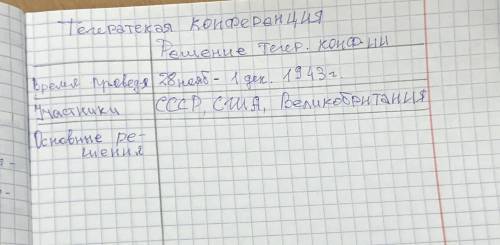 Телератская конференция
Решение телер. конф-ии
Время проведя 28 нояб - 1 дек. 1943 г.
Участники СССР, США, Великобритания
Основные ре-
шения